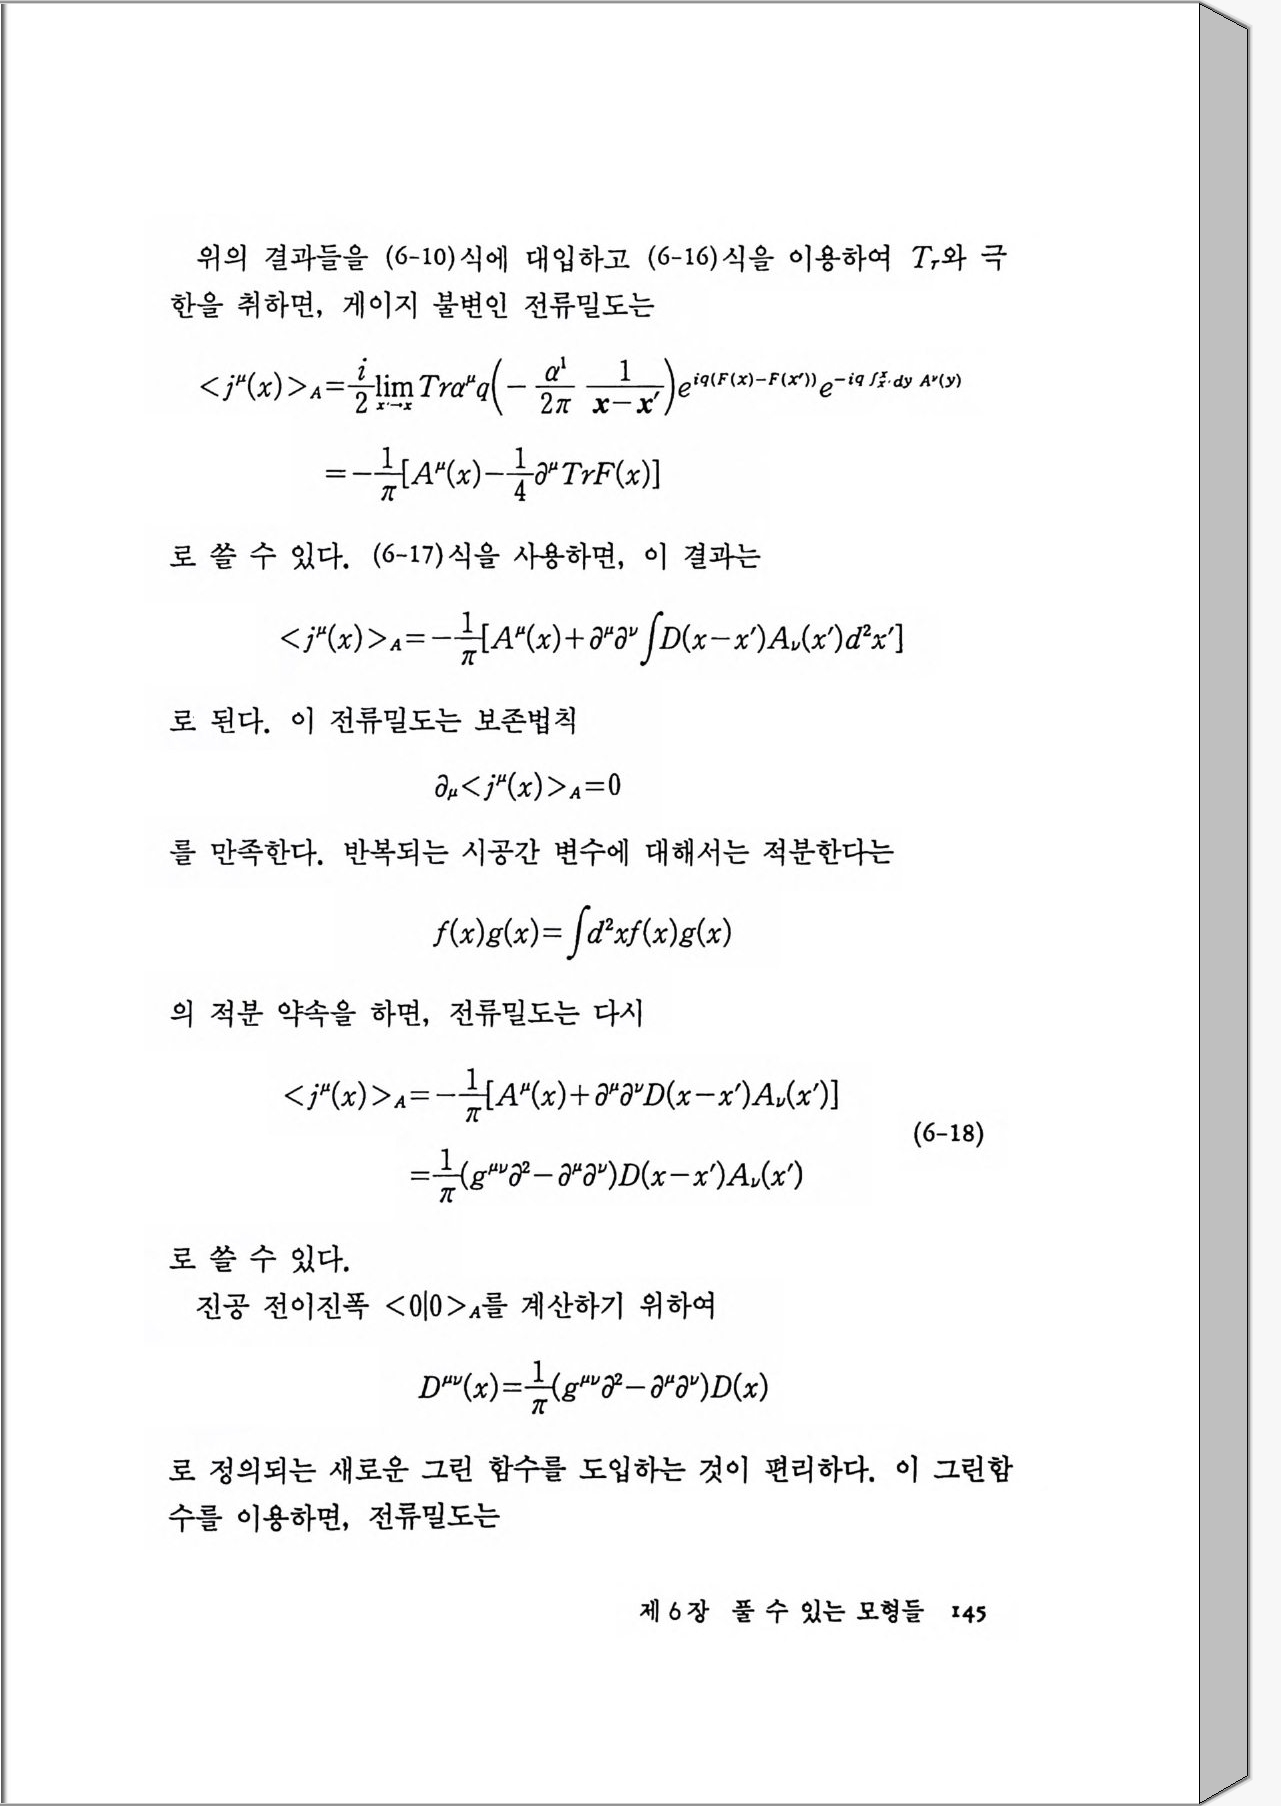 위의 결과들을 (6-10)식에 대입하고 (6-16)식을 이용하여 Tr와 극
한을 취하면, 게이지 불변인 전류밀도는
<j^μ(x)>_A = \frac{i}{2} \lim_{x'→x} Trα^μ q(-\frac{α^1}{2π} \frac{1}{x-x'}) e^{iq(F(x)-F(x'))} e^{-iq∫_{x'}^{x} dy A^ν(y)}
= -\frac{1}{π}[A^μ(x) - \frac{1}{4}∂^μ TrF(x)]
로 쓸 수 있다. (6-17)식을 사용하면, 이 결과는
<j^μ(x)>_A = -\frac{1}{π}[A^μ(x) + ∂^μ∂^ν ∫D(x-x')A_ν(x')d²x']
로 된다. 이 전류밀도는 보존법칙
∂_μ<j^μ(x)>_A = 0
를 만족한다. 반복되는 시공간 변수에 대해서는 적분한다는
f(x)g(x) = ∫d²xf(x)g(x)
의 적분 약속을 하면, 전류밀도는 다시
<j^μ(x)>_A = -\frac{1}{π}[A^μ(x) + ∂^μ∂^νD(x-x')A_ν(x')]
(6-18)
= \frac{1}{π}(g^{μν}∂² - ∂^μ∂^ν)D(x-x')A_ν(x')
로 쓸 수 있다.
진공 전이진폭 <0|0>_A를 계산하기 위하여
D^{μν}(x) = \frac{1}{π}(g^{μν}∂² - ∂^μ∂^ν)D(x)
로 정의되는 새로운 그린 함수를 도입하는 것이 편리하다. 이 그린함
수를 이용하면, 전류밀도는
제 6 장 풀 수 있는 모형들 145